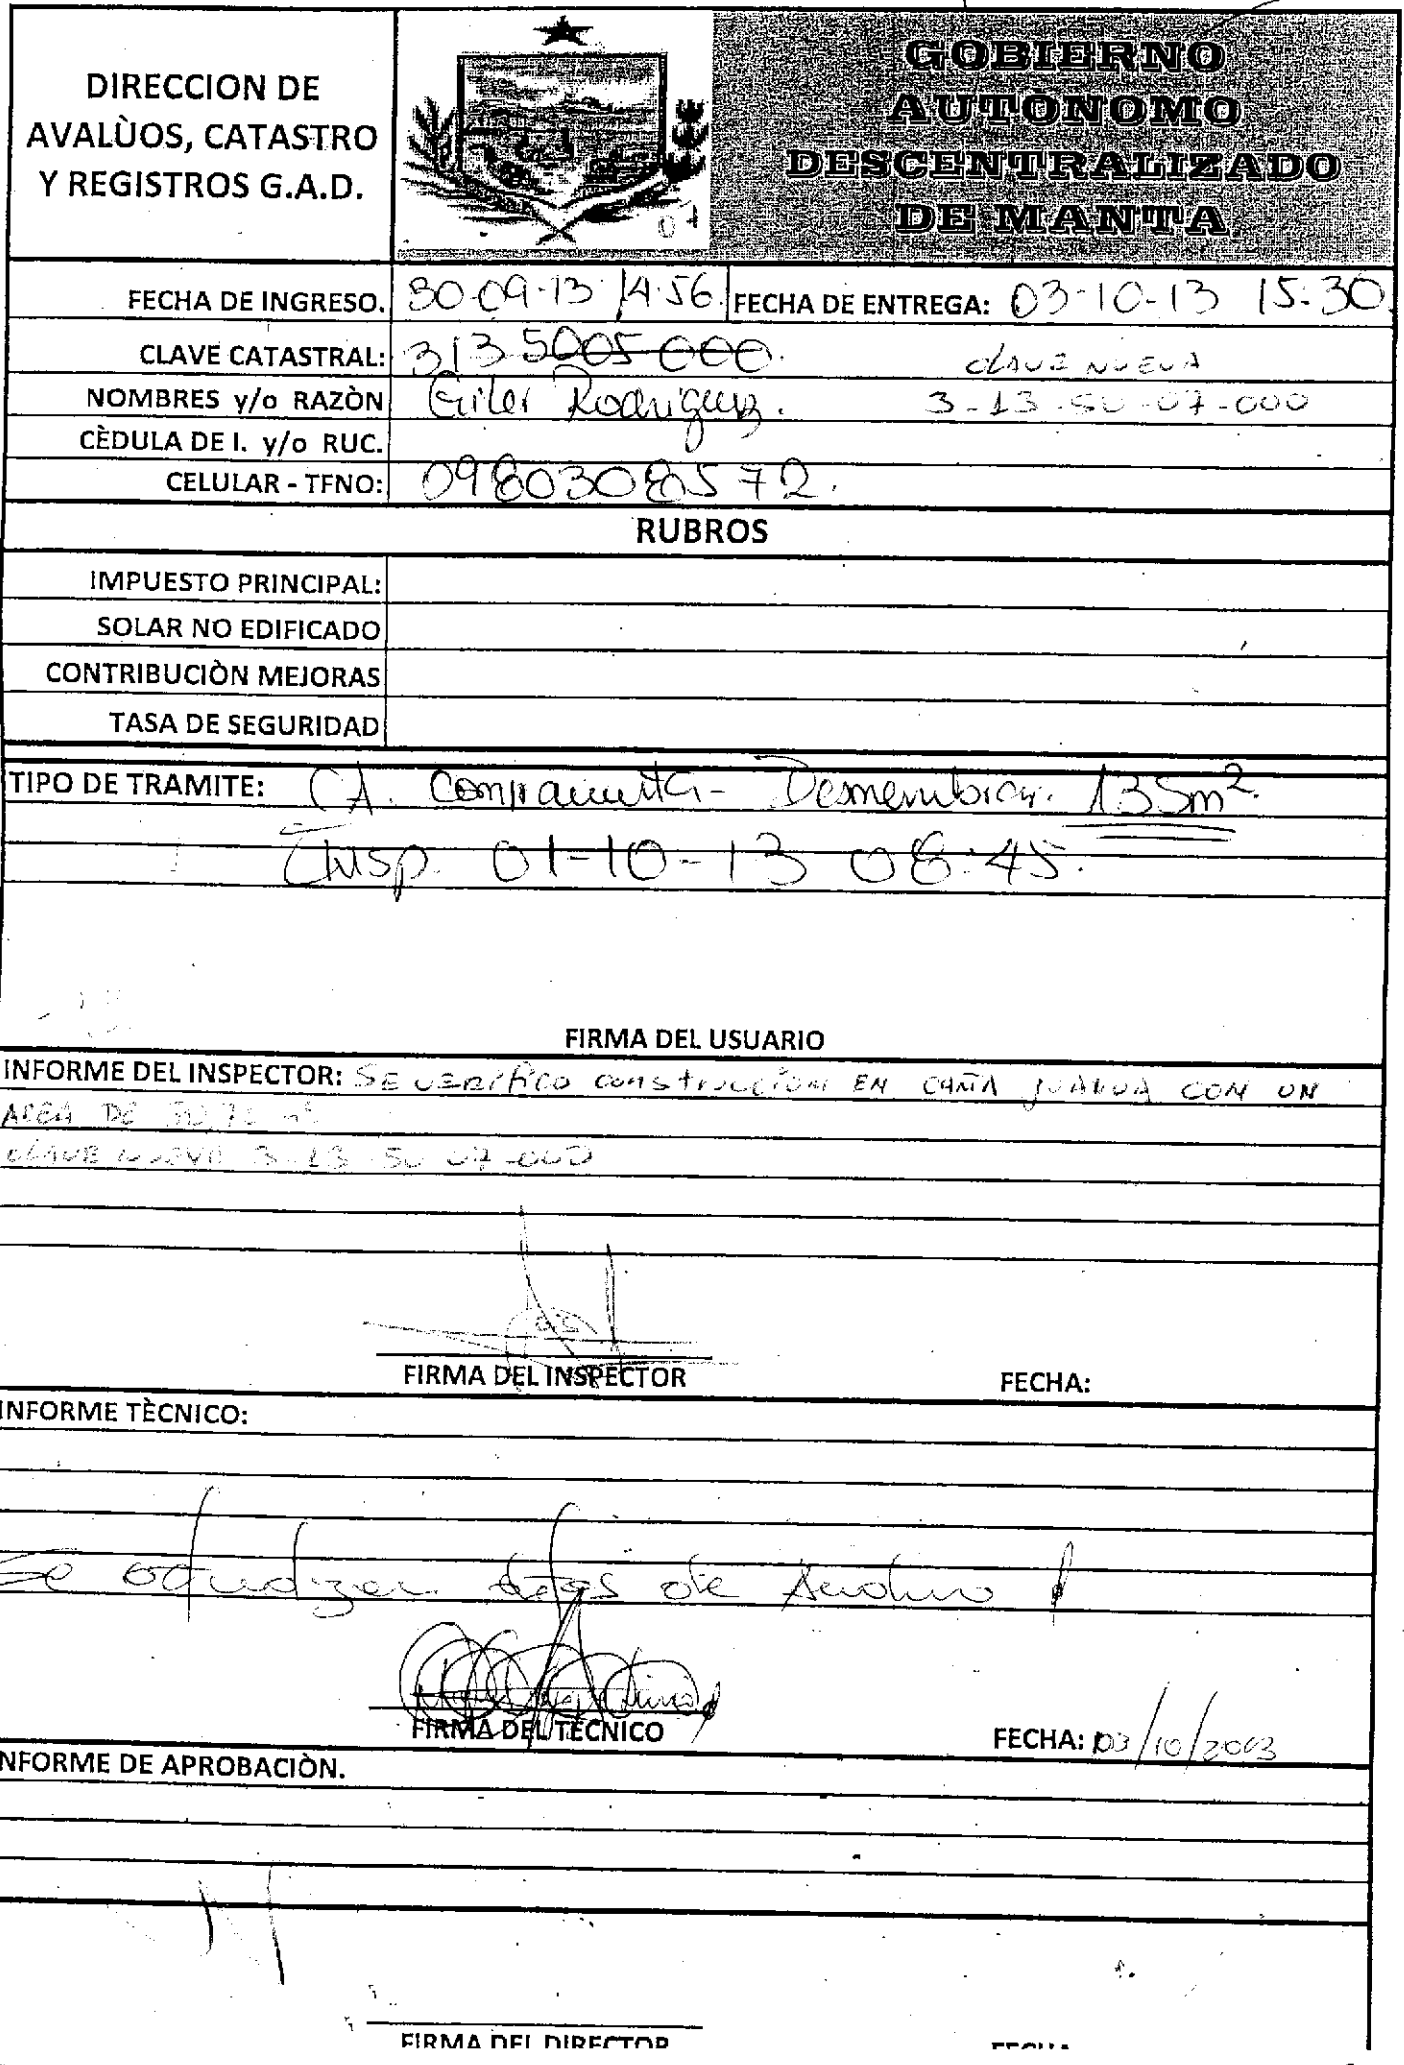 DIRECCION DE
AVALÙOS, CATASTRO
Y REGISTROS G.A.D.
GOBIERNO
AUTÒNOMO
DESCENTRALIZADO
DE MANTA
07
FECHA DE INGRESO. 30-09-13 14:56 FECHA DE ENTREGA: 03-10-13 15:30
CLAVE CATASTRAL: 3135005000. CLAVE NUEVA
NOMBRES y/o RAZÒN Giler Rodriguez. 3-13-50-07-000
CÈDULA DE I. y/o RUC.
CELULAR - TFNO: 0980308572.
RUBROS
IMPUESTO PRINCIPAL:
SOLAR NO EDIFICADO
CONTRIBUCIÒN MEJORAS
TASA DE SEGURIDAD
TIPO DE TRAMITE: CA. Compraventa- Desmembrar. 135m².
Insp. 01-10-13 08:45.
FIRMA DEL USUARIO
INFORME DEL INSPECTOR: SE VERIFICO CONSTRUCCION EN CAÑA GUADUA CON UN
AREA DE m²
CLAVE NUEVA 3-13-50-07-000
FIRMA DEL INSPECTOR FECHA:
INFORME TÈCNICO:
Se datos de
FIRMA DEL TÈCNICO FECHA: 03/10/2013
INFORME DE APROBACIÒN.
FIRMA DEL DIRECTOR FECHA